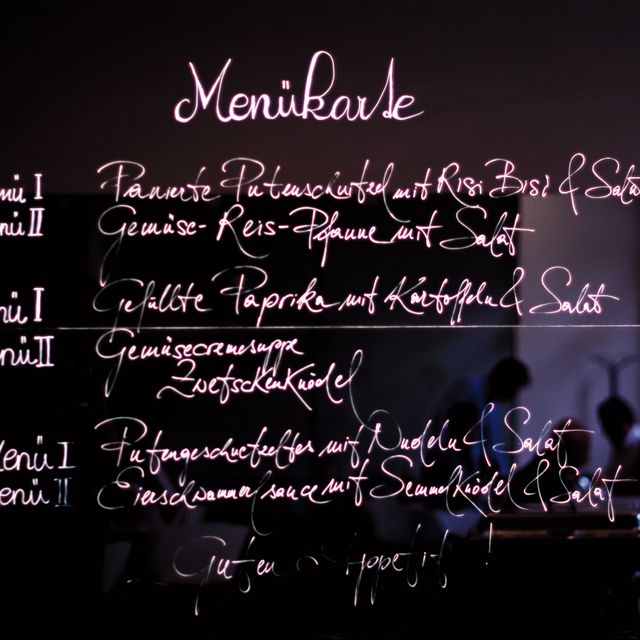 Menükarte
nü I Panierte Putenschnitzel mit Risi Bisi & Salat
nü II Gemüse-Reis-Pfanne mit Salat
nü I Gefüllte Paprika mit Kartoffeln & Salat
enü II Gemüsecremesuppe
Zwetschkenknödel
Menü I Putengeschnetzeltes mit Nudeln & Salat
enü II Eierschwammerlsauce mit Semmelknödel & Salat
Guten Appetit!